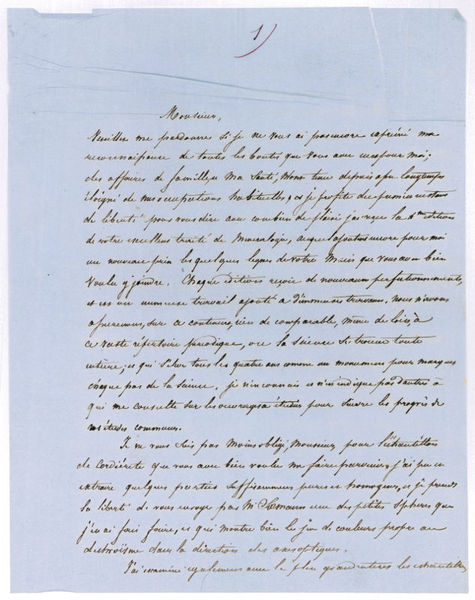 1)
Monsieur,
Veuillez me pardonner si je ne vous ai pas encore exprimé ma
reconnaissance de toutes les bontés que vous avez eues pour moi;
des affaires de famille, et ma santé, m'ont tenu depuis longtemps
éloigné de mes occupations habituelles, et je profite du premier instant
de liberté pour vous dire avec combien de plaisir j'ai reçu la 4e édition
de votre excellent traité de Mineralogie, auquel ajoutait encore pour moi
un nouveau prix les quelques lignes de votre main que vous avez bien
voulu y joindre. Chaque édition reçoit de nouveaux perfectionnements,
et est un immense travail ajouté à d'immenses travaux, nous n'avons
sur ce continent, rien de comparable, même de loin, à
ce vaste répertoire périodique, où la science se trouve toute
entière, et qui s'élève tous les quatre ans comme un monument pour marquer
chaque pas de la science. je n'en connais et n'en indique pas d'autre à
qui me consulte sur les ouvrages à étudier pour suivre les progrès de
nos études communes.
Je ne vous suis pas moins obligé, Monsieur, pour l'échantillon
de Cordiérite que vous avez bien voulu me faire parvenir, j'ai pu en
extraire quelques parties suffisamment pures et homogènes, et je prends
la liberté de vous envoyer par Mr Saemann une des petites sphères que
j'en ai fait faire, et qui montre bien le jeu de couleurs propre au
dichroïsme dans la direction des axes optiques.
J'ai examiné également avec le plus grand intérêt les échantillons